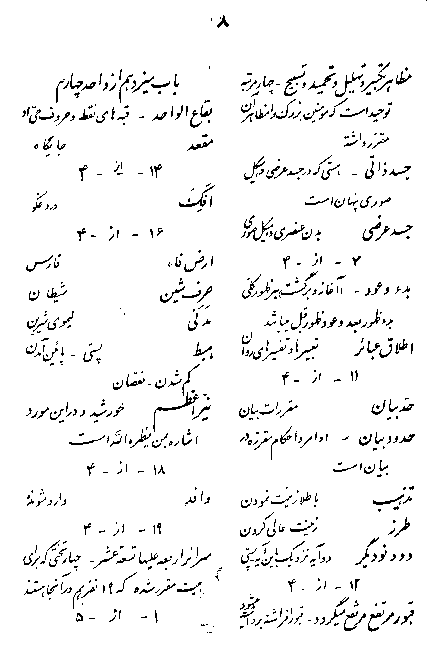 ۸
مظاهر تکبیر و تهلیل و تحمید و تسبیح - چهار مرتبه
توحید است که مؤمنین بزرگ را مظاهر آن
مقرر داشته
جسد ذاتی - هستی که در جسد عرضی و هیکل
صوری پنهان است
جسد عرضی بدن عنصری و هیکل صوری
۲ - از - ۴
بدء و عود - آغاز و برگشت هر ظهور کلی
بدء ظهور بعد و عود ظهور قبل میباشد
اطلاق عبائر تعبیرها و تفسیرهای روان
۱۱ - از - ۴
حد بیان مقررات بیان
حدود بیان - اوامر و احکام مقرره در
بیان است
تذهیب با طلا زینت نمودن
طرز زینت عالی کردن
دود نود یگر
۱۲ - از - ۴
قبور مرتفع مرتفع میگردد - قبور افراشته
باب سیزدهم از واحد چهارم
بقاع الواحد - قبه های نقطه و حروف حی
مقعد جایگاه
۱۴ - از - ۴
افک دروغگو
۱۶ - از - ۴
ارض فاء فارس
حرف شین شیطان
مدنی لیموی شیرین
هبط پستی - پائین آمدن
کم شدن - نقصان
نیر اعظم خورشید و در این مورد
اشاره بمن یظهره الله است
۱۸ - از - ۴
وافد وارد شونده
۱۹ - از - ۴
سرائر اربعه علیها تسعة عشر - چهار تختی که برای
بیت مقرر شده که ۱۹ نفر هم در آنجا هستند
۱ - از - ۵